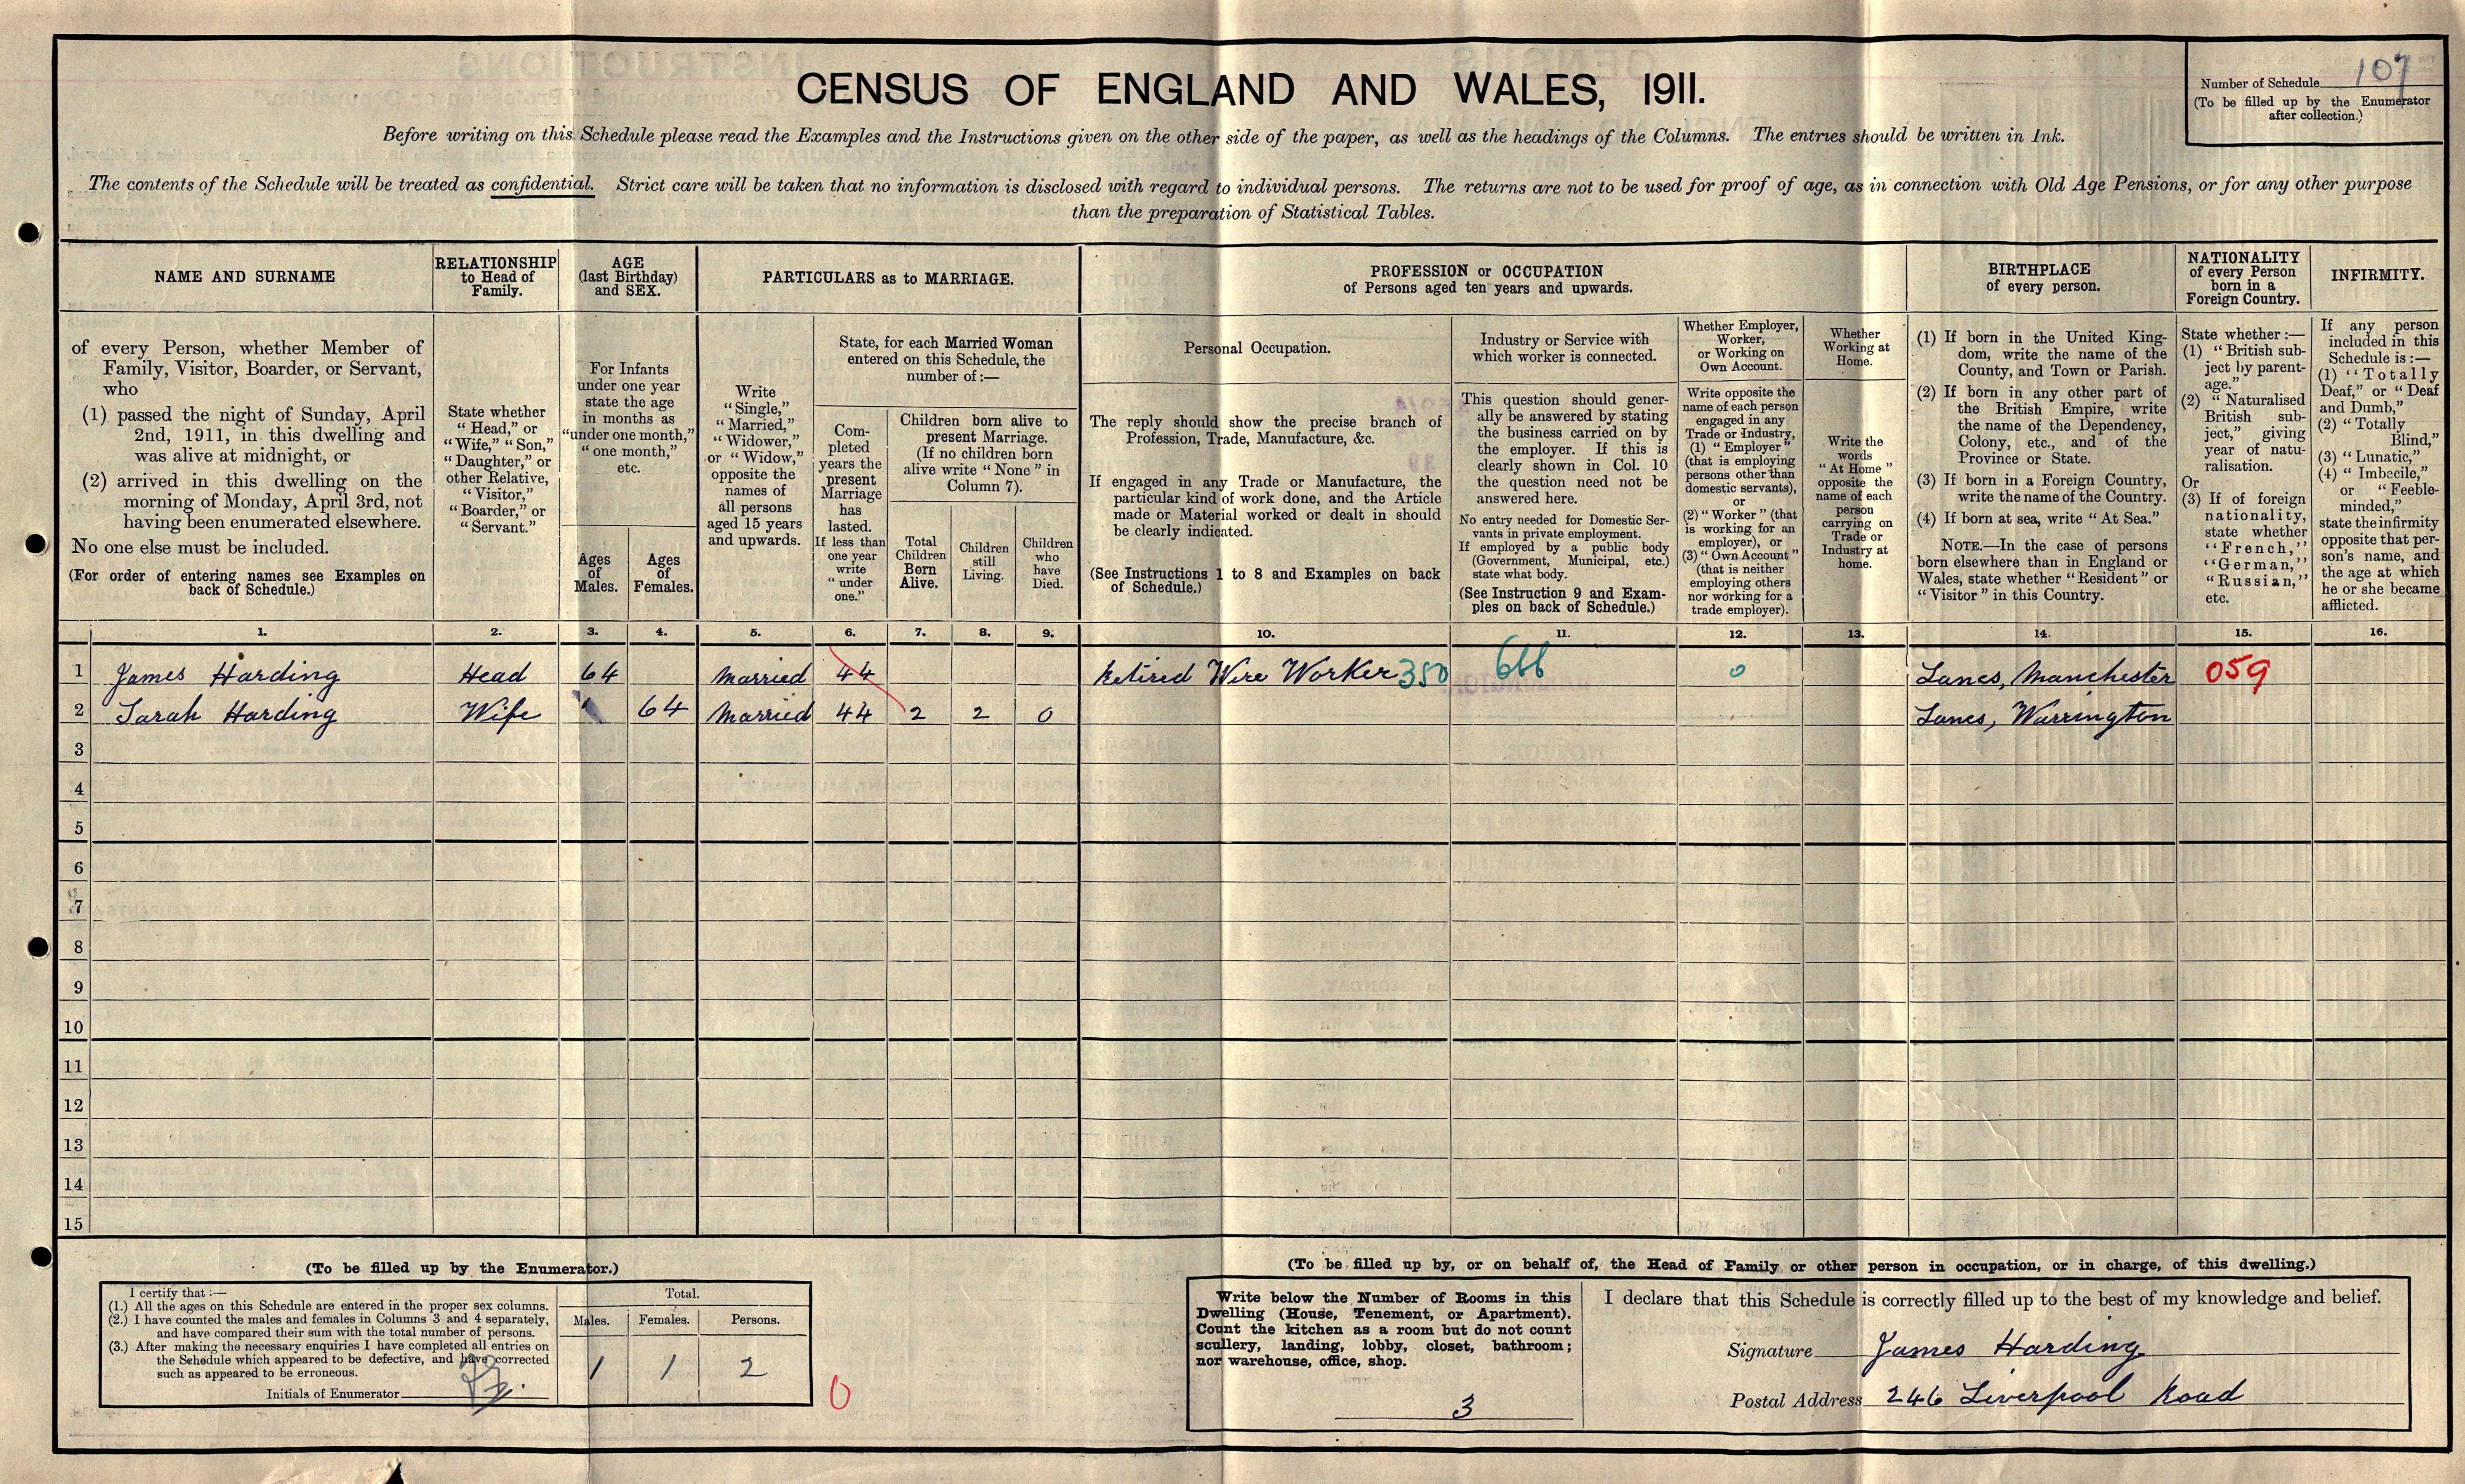 CENSUS OF ENGLAND AND WALES, 1911.
Number of Schedule 107
(To be filled up by the Enumerator
after collection.)
Before writing on this Schedule please read the Examples and the Instructions given on the other side of the paper, as well as the headings of the Columns. The entries should be written in Ink.
The contents of the Schedule will be treated as confidential. Strict care will be taken that no information is disclosed with regard to individual persons. The returns are not to be used for proof of age, as in connection with Old Age Pensions, or for any other purpose
than the preparation of Statistical Tables.
NAME AND SURNAME
of every Person, whether Member of
Family, Visitor, Boarder, or Servant,
who
(1) passed the night of Sunday, April
2nd, 1911, in this dwelling and
was alive at midnight, or
(2) arrived in this dwelling on the
morning of Monday, April 3rd, not
having been enumerated elsewhere.
No one else must be included.
(For order of entering names see Examples on
back of Schedule.)
RELATIONSHIP
to Head of
Family.
State whether
"Head," or
"Wife," "Son,"
"Daughter," or
other Relative,
"Visitor,"
"Boarder," or
"Servant."
AGE
(last Birthday)
and SEX.
For Infants
under one year
state the age
in months as
"under one month,"
"one month,"
etc.
Ages
of
Males.
Ages
of
Females.
PARTICULARS as to MARRIAGE.
Write
"Single,"
"Married,"
"Widower,"
or "Widow,"
opposite the
names of
all persons
aged 15 years
and upwards.
State, for each Married Woman
entered on this Schedule, the
number of:—
Com-
pleted
years the
present
Marriage
has
lasted.
If less than
one year
write
"under
one."
Children born alive to
present Marriage.
(If no children born
alive write "None" in
Column 7).
Total
Children
Born
Alive.
Children
still
Living.
Children
who
have
Died.
PROFESSION or OCCUPATION
of Persons aged ten years and upwards.
Personal Occupation.
The reply should show the precise branch of
Profession, Trade, Manufacture, &c.
If engaged in any Trade or Manufacture, the
particular kind of work done, and the Article
made or Material worked or dealt in should
be clearly indicated.
(See Instructions 1 to 8 and Examples on back
of Schedule.)
Industry or Service with
which worker is connected.
This question should gener-
ally be answered by stating
the business carried on by
the employer. If this is
clearly shown in Col. 10
the question need not be
answered here.
No entry needed for Domestic Ser-
vants in private employment.
If employed by a public body
(Government, Municipal, etc.)
state what body.
(See Instruction 9 and Exam-
ples on back of Schedule.)
Whether Employer,
Worker,
or Working on
Own Account.
Write opposite the
name of each person
engaged in any
Trade or Industry,
(1) "Employer"
(that is employing
persons other than
domestic servants),
or
(2) "Worker" (that
is working for an
employer), or
(3) "Own Account"
(that is neither
employing others
nor working for a
trade employer).
Whether
Working at
Home.
Write the
words
"At Home"
opposite the
name of each
person
carrying on
Trade or
Industry at
home.
BIRTHPLACE
of every person.
(1) If born in the United King-
dom, write the name of the
County, and Town or Parish.
(2) If born in any other part of
the British Empire, write
the name of the Dependency,
Colony, etc., and of the
Province or State.
(3) If born in a Foreign Country,
write the name of the Country.
(4) If born at sea, write "At Sea."
NOTE.—In the case of persons
born elsewhere than in England or
Wales, state whether "Resident" or
"Visitor" in this Country.
NATIONALITY
of every Person
born in a
Foreign Country.
State whether:—
(1) "British sub-
ject by parent-
age."
(2) "Naturalised
British sub-
ject," giving
year of natu-
ralisation.
Or
(3) If of foreign
nationality,
state whether
"French,"
"German,"
"Russian,"
etc.
INFIRMITY.
If any person
included in this
Schedule is:—
(1) "Totally
Deaf," or "Deaf
and Dumb,"
(2) "Totally
Blind,"
(3) "Lunatic,"
(4) "Imbecile,"
or "Feeble-
minded,"
state the infirmity
opposite that per-
son's name, and
the age at which
he or she became
afflicted.
1. 2. 3. 4. 5. 6. 7. 8. 9. 10. 11. 12. 13. 14. 15. 16.
1 James Harding Head 64 Married 44 Retired Wire Worker 350 666 0 Lancs, Manchester 059
2 Sarah Harding Wife 64 Married 44 2 2 0 Lancs, Warrington
3
4
5
6
7
8
9
10
11
12
13
14
15
(To be filled up by the Enumerator.)
I certify that:—
(1.) All the ages on this Schedule are entered in the proper sex columns.
(2.) I have counted the males and females in Columns 3 and 4 separately,
and have compared their sum with the total number of persons.
(3.) After making the necessary enquiries I have completed all entries on
the Schedule which appeared to be defective, and have corrected
such as appeared to be erroneous.
Initials of Enumerator
Total.
Males. Females. Persons.
1 1 2
0
(To be filled up by, or on behalf of, the Head of Family or other person in occupation, or in charge, of this dwelling.)
Write below the Number of Rooms in this
Dwelling (House, Tenement, or Apartment).
Count the kitchen as a room but do not count
scullery, landing, lobby, closet, bathroom;
nor warehouse, office, shop.
3
I declare that this Schedule is correctly filled up to the best of my knowledge and belief.
Signature James Harding
Postal Address 246 Liverpool Road